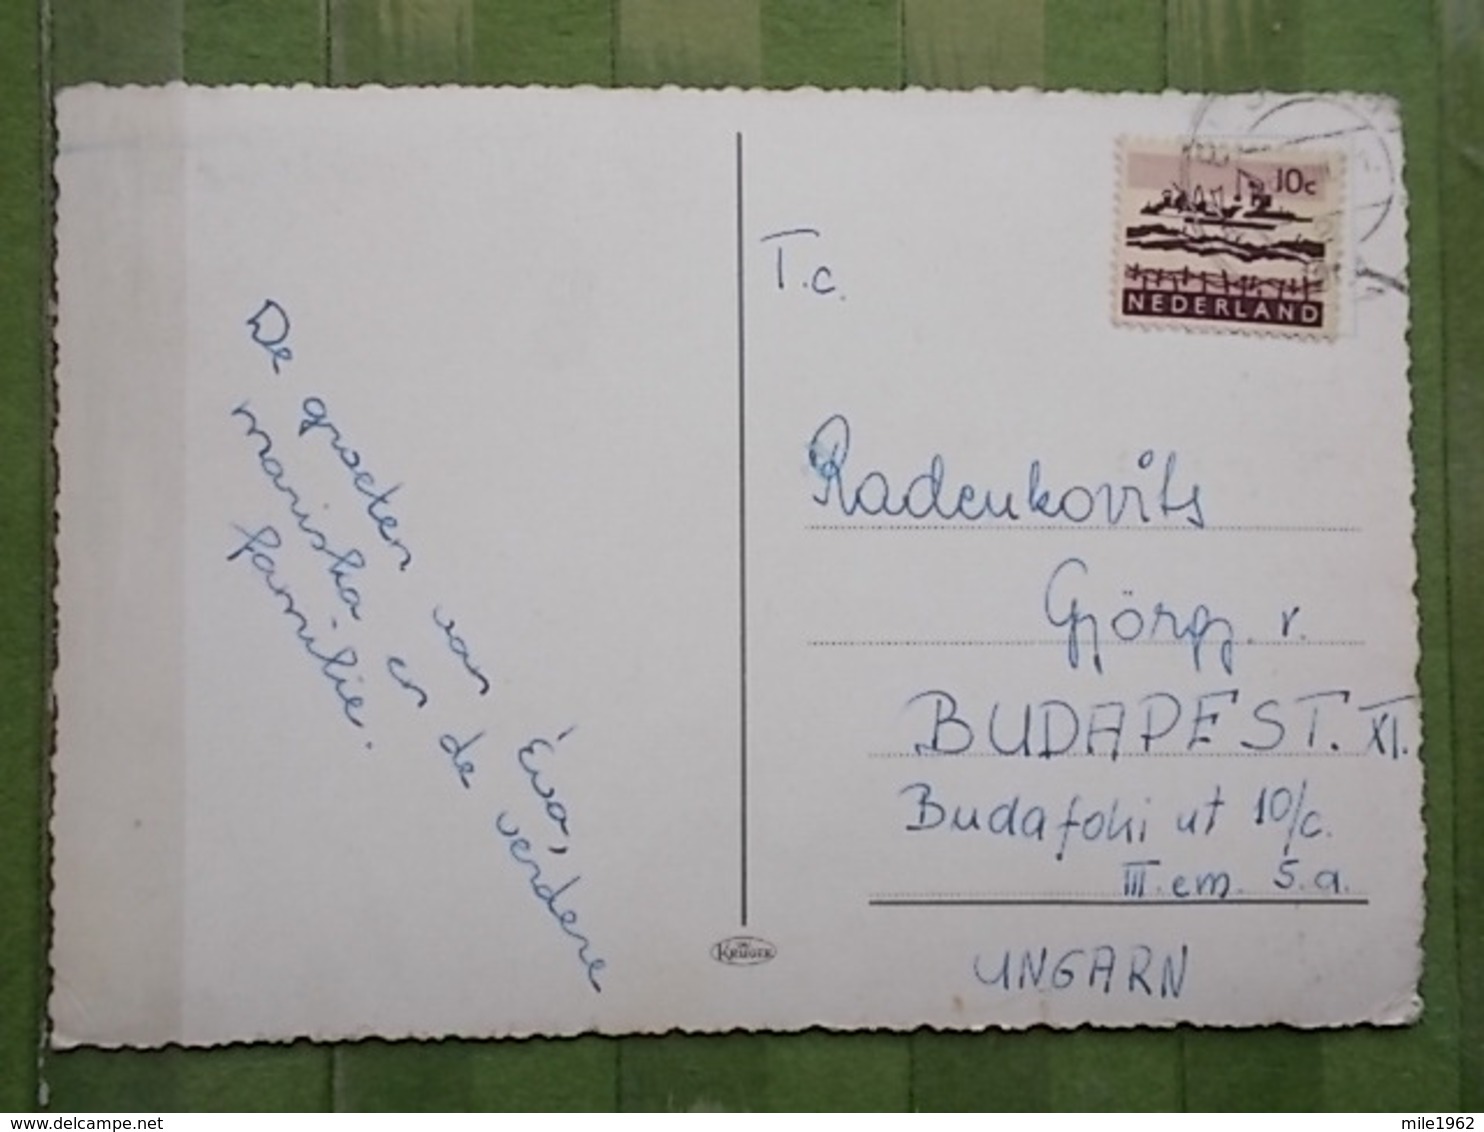 De groeten van Éva,
mariska en de verdere
familie.
T.c.
10c
NEDERLAND
Radenkovits
György. r.
BUDAPEST. XI.
Budafoki ut 10/c.
III. em. 5. a.
UNGARN
KRÜGER
www.delcampe.net
mile1962